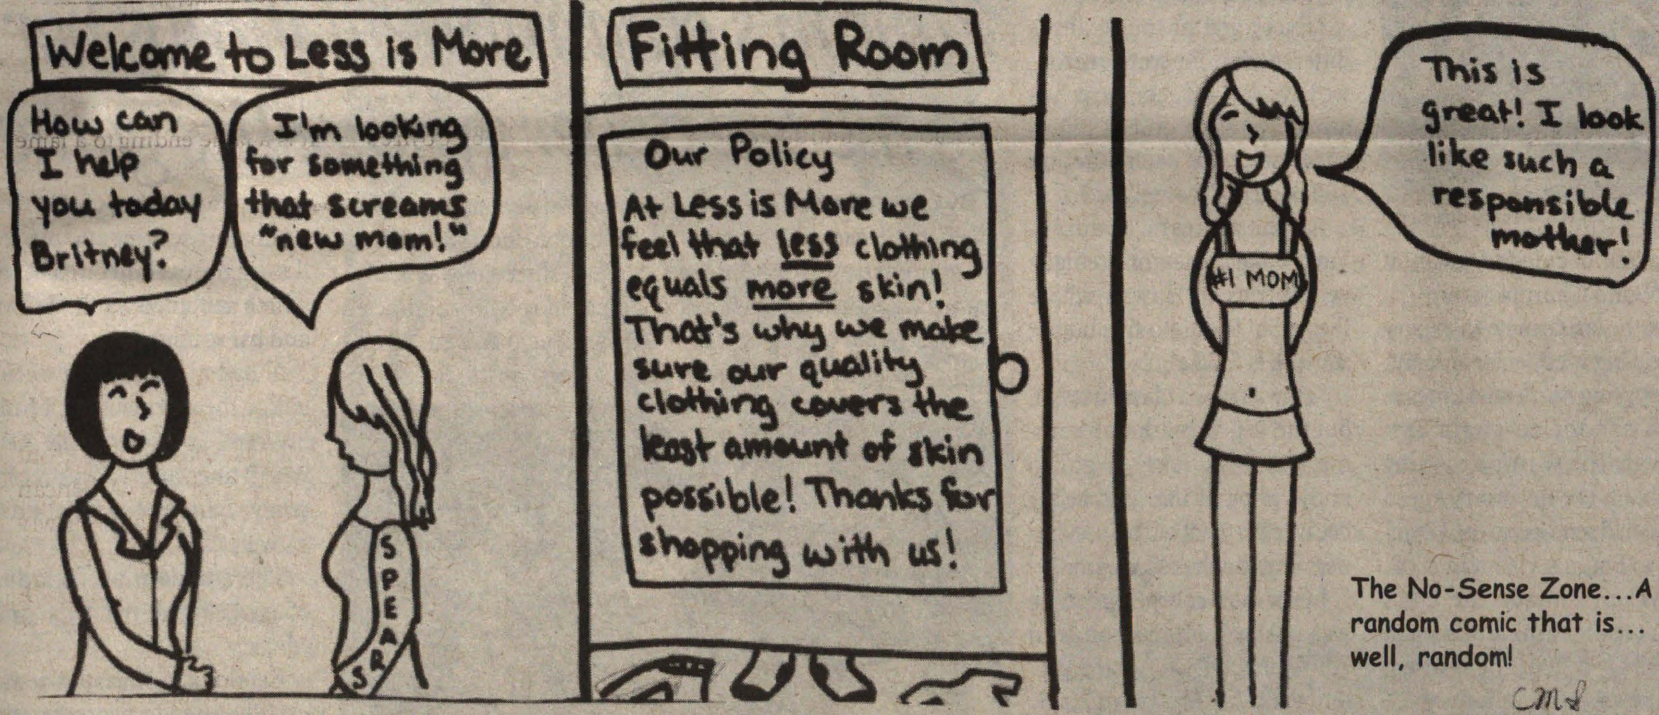 Welcome to Less is More
How can
I help
you today
Britney?
I'm looking
for something
that screams
"new mom!"
SPEARS
Fitting Room
Our Policy
At Less is More we
feel that less clothing
equals more skin!
That's why we make
sure our quality
clothing covers the
least amount of skin
possible! Thanks for
shopping with us!
This is
great! I look
like such a
responsible
mother!
#1 MOM
The No-Sense Zone...A
random comic that is...
well, random!